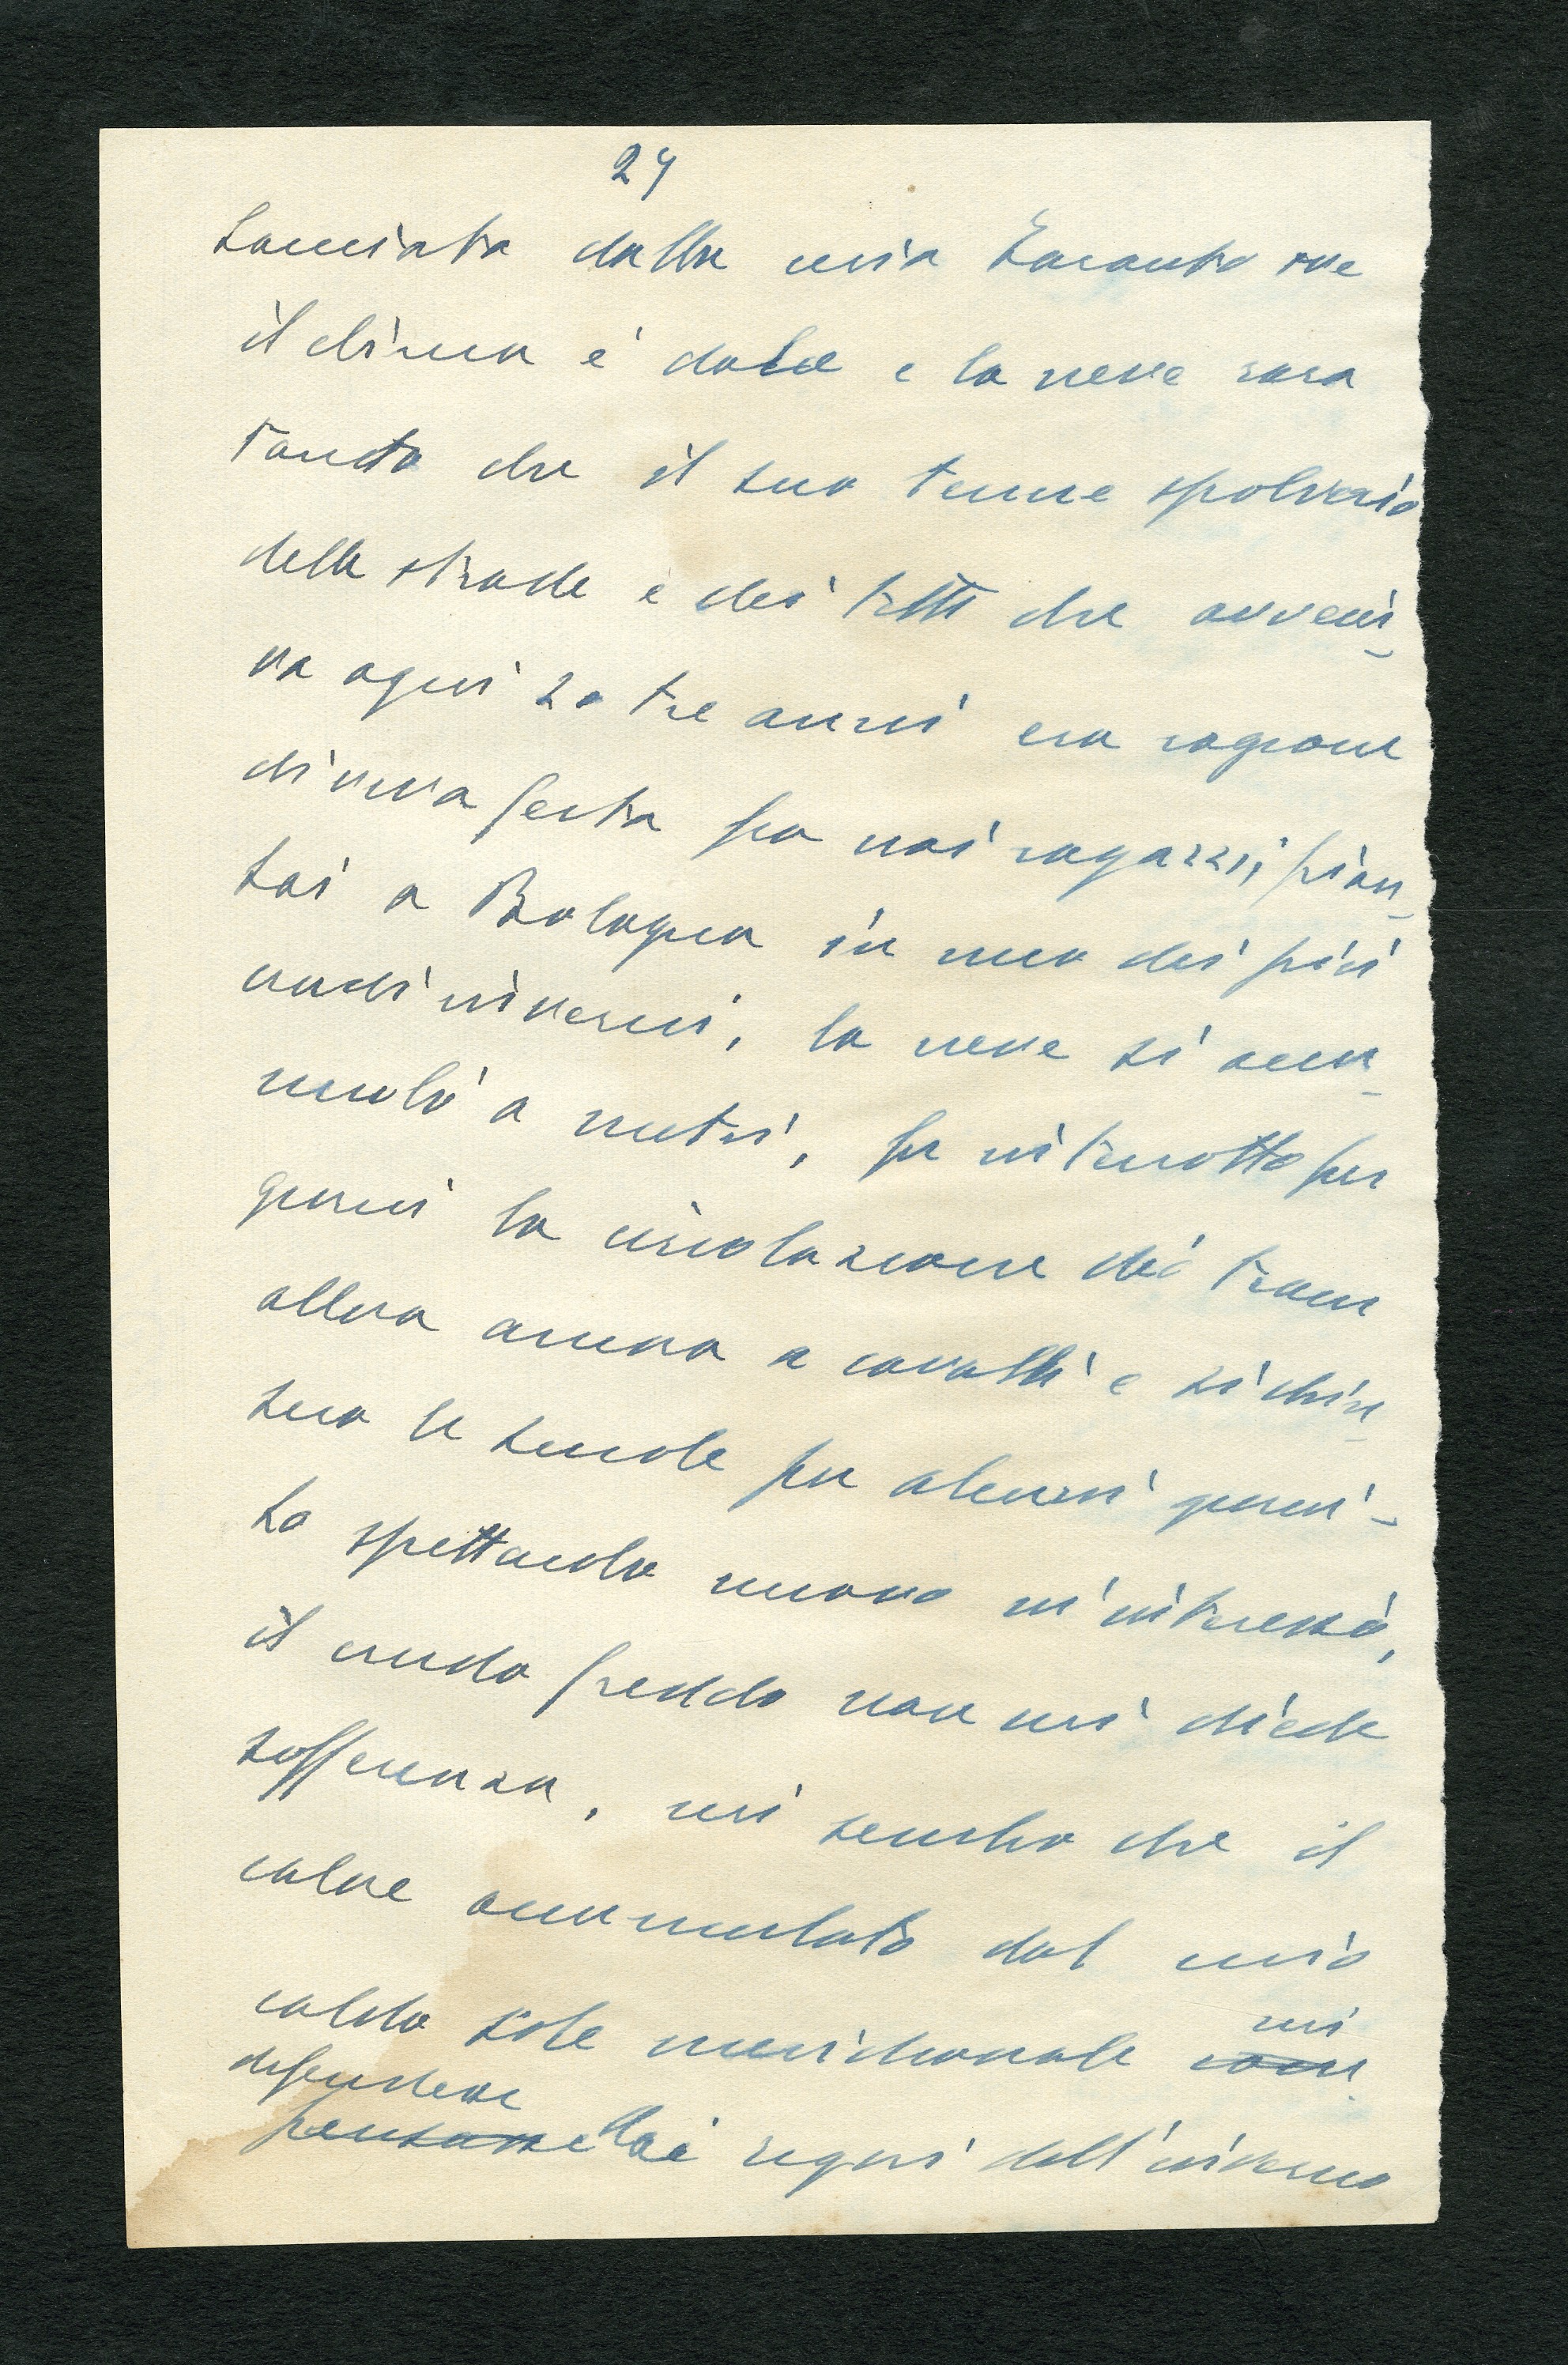 24
Lanciata dalla mia Taranto ove
il clima è dolce e la neve rara
tanto che il suo tenue spolverio
delle strade e dei tetti che avveni-
va ogni 2 o tre anni era ragione
di viva festa per noi ragazzi, pian-
tai a Bologna in uno dei più
crudi inverni, la neve si accu-
mulò a metri, fu interrotto per
giorni la circolazione dei tram
allora ancora a cavalli e si chiu-
sero le scuole per alcuni giorni -
Lo spettacolo nuovo m'interessò,
il crudo freddo non mi diede
sofferenza, mi sembra che il
calore accumulato dal mio
caldo sole meridionale mi
difendesse dai rigori dell'inverno